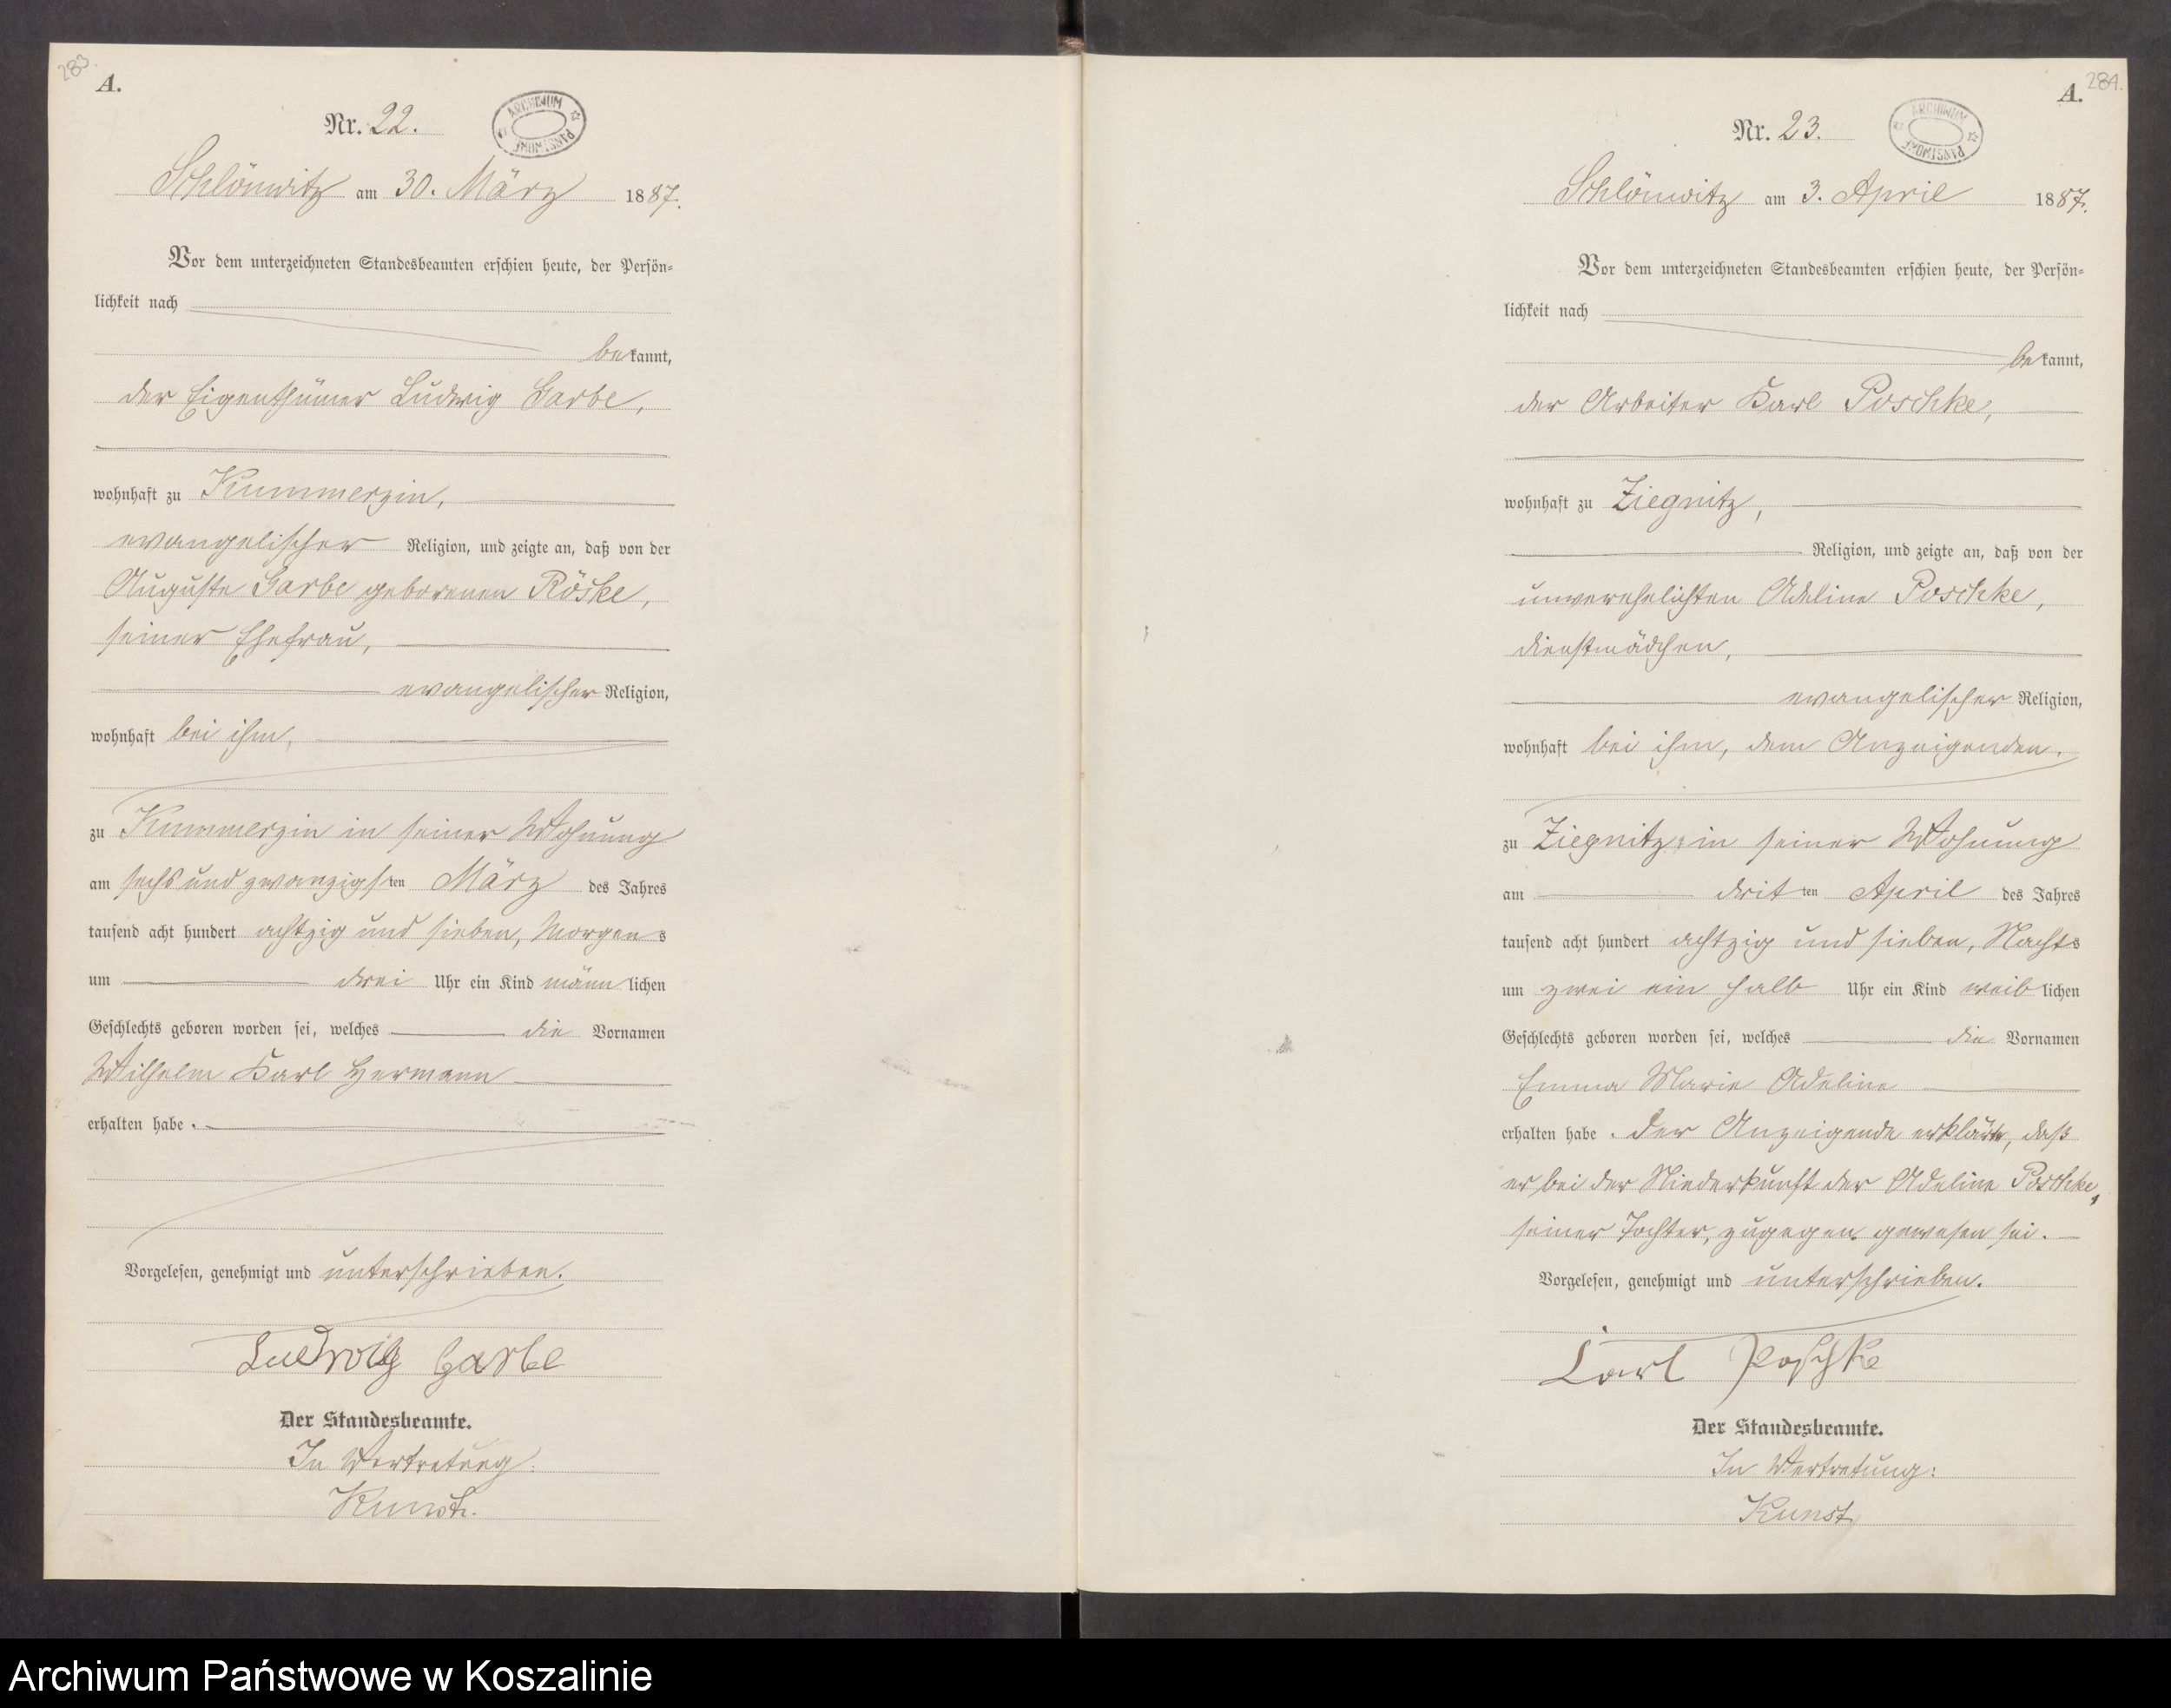 283.
A.
Nr. 22.
ARCHIWUM PAŃSTWOWE
Schlönwitz am 30. März 1887.
Vor dem unterzeichneten Standesbeamten erschien heute, der Persön-
lichkeit nach
bekannt,
der Eigenthümer Ludwig Garbe,
wohnhaft zu Kummerzin,
evangelischer Religion, und zeigte an, daß von der
Auguste Garbe geborenen Röske,
seiner Ehefrau,
evangelischer Religion,
wohnhaft bei ihm,
zu Kummerzin in seiner Wohnung
am sechs und zwanzigsten März des Jahres
tausend acht hundert achtzig und sieben, Morgens
um drei Uhr ein Kind männlichen
Geschlechts geboren worden sei, welches die Vornamen
Wilhelm Karl Hermann
erhalten habe.
Vorgelesen, genehmigt und unterschrieben.
Ludwig Garbe
Der Standesbeamte.
In Vertretung:
Kunst.
284.
A.
Nr. 23.
ARCHIWUM PAŃSTWOWE
Schlönwitz am 3. April 1887.
Vor dem unterzeichneten Standesbeamten erschien heute, der Persön-
lichkeit nach
bekannt,
der Arbeiter Karl Poschke,
wohnhaft zu Ziegnitz,
Religion, und zeigte an, daß von der
unverehelichten Adeline Poschke,
Dienstmädchen,
evangelischer Religion,
wohnhaft bei ihm, dem Anzeigenden.
zu Ziegnitz in seiner Wohnung
am dritten April des Jahres
tausend acht hundert achtzig und sieben, Nachts
um zwei ein halb Uhr ein Kind weiblichen
Geschlechts geboren worden sei, welches die Vornamen
Emma Marie Adeline
erhalten habe. Der Anzeigende erklärte, daß
er bei der Niederkunft der Adeline Poschke,
seiner Tochter, zugegen gewesen sei.
Vorgelesen, genehmigt und unterschrieben.
Carl Poschke
Der Standesbeamte.
In Vertretung:
Kunst
Archiwum Państwowe w Koszalinie